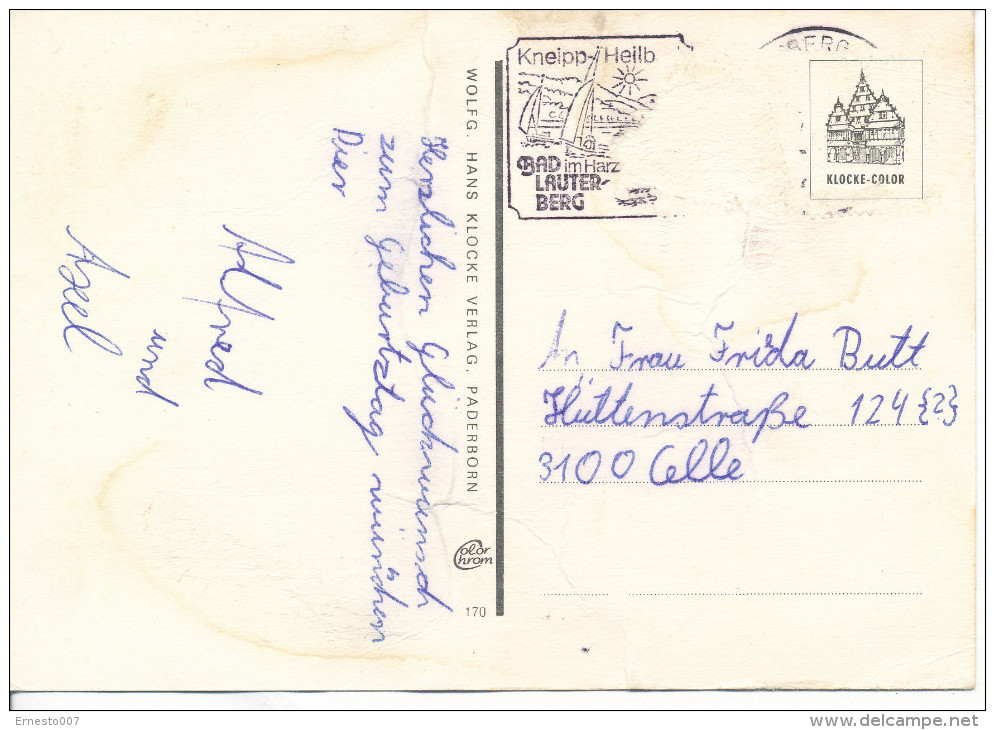 Herzlichen Glückwunsch
zum Geburtztag wünchen
Dier
Alfred
und
Axel
WOLFG. HANS KLOCKE VERLAG, PADERBORN
Color Chrom
170
Kneipp-Heilb
BAD im Harz
LAUTER-
BERG
BERG
KLOCKE-COLOR
An Frau Frida Butt
Hüttenstraße 124 {2}
3100 Celle
Ernesto007
www.delcampe.net